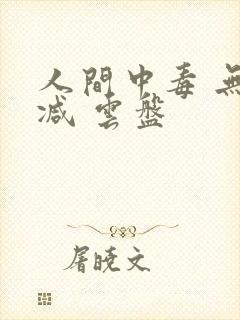 人間中毒 無
減 雲盤
屠曉文